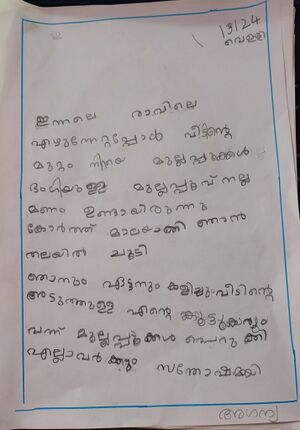 1/3/24
വെള്ളി
ഇന്നലെ രാവിലെ
എഴുന്നേറ്റപ്പോൾ വീട്ടിന്റെ
മുറ്റം നിറയെ മുല്ലപ്പൂക്കൾ
ഭംഗിയുള്ള മുല്ലപ്പൂവ് നല്ല
മണം ഉണ്ടായിരുന്നു
കോർത്ത് മാലയാക്കി ഞാൻ
തലയിൽ ചൂടി
ഞാനും ഏട്ടനും കളിച്ചു വീടിന്റെ
അടുത്തുള്ള എന്റെ കൂട്ടുകാരും
വന്ന് മുല്ലപ്പൂക്കൾ പെറുക്കി
എല്ലാവർക്കും സന്തോഷമായി
അഗന്യ